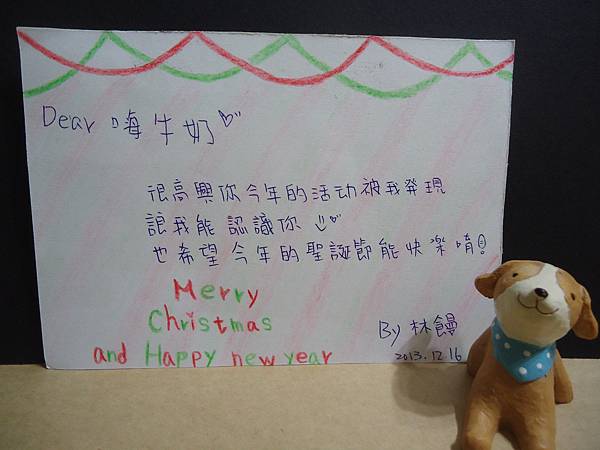 Dear 嗨牛奶
很高興你今年的活动被我發現
讓我能認識你
也希望今年的聖誕節能快樂唷!
Merry
Christmas
and Happy new year
By 林饅
2013.12.16